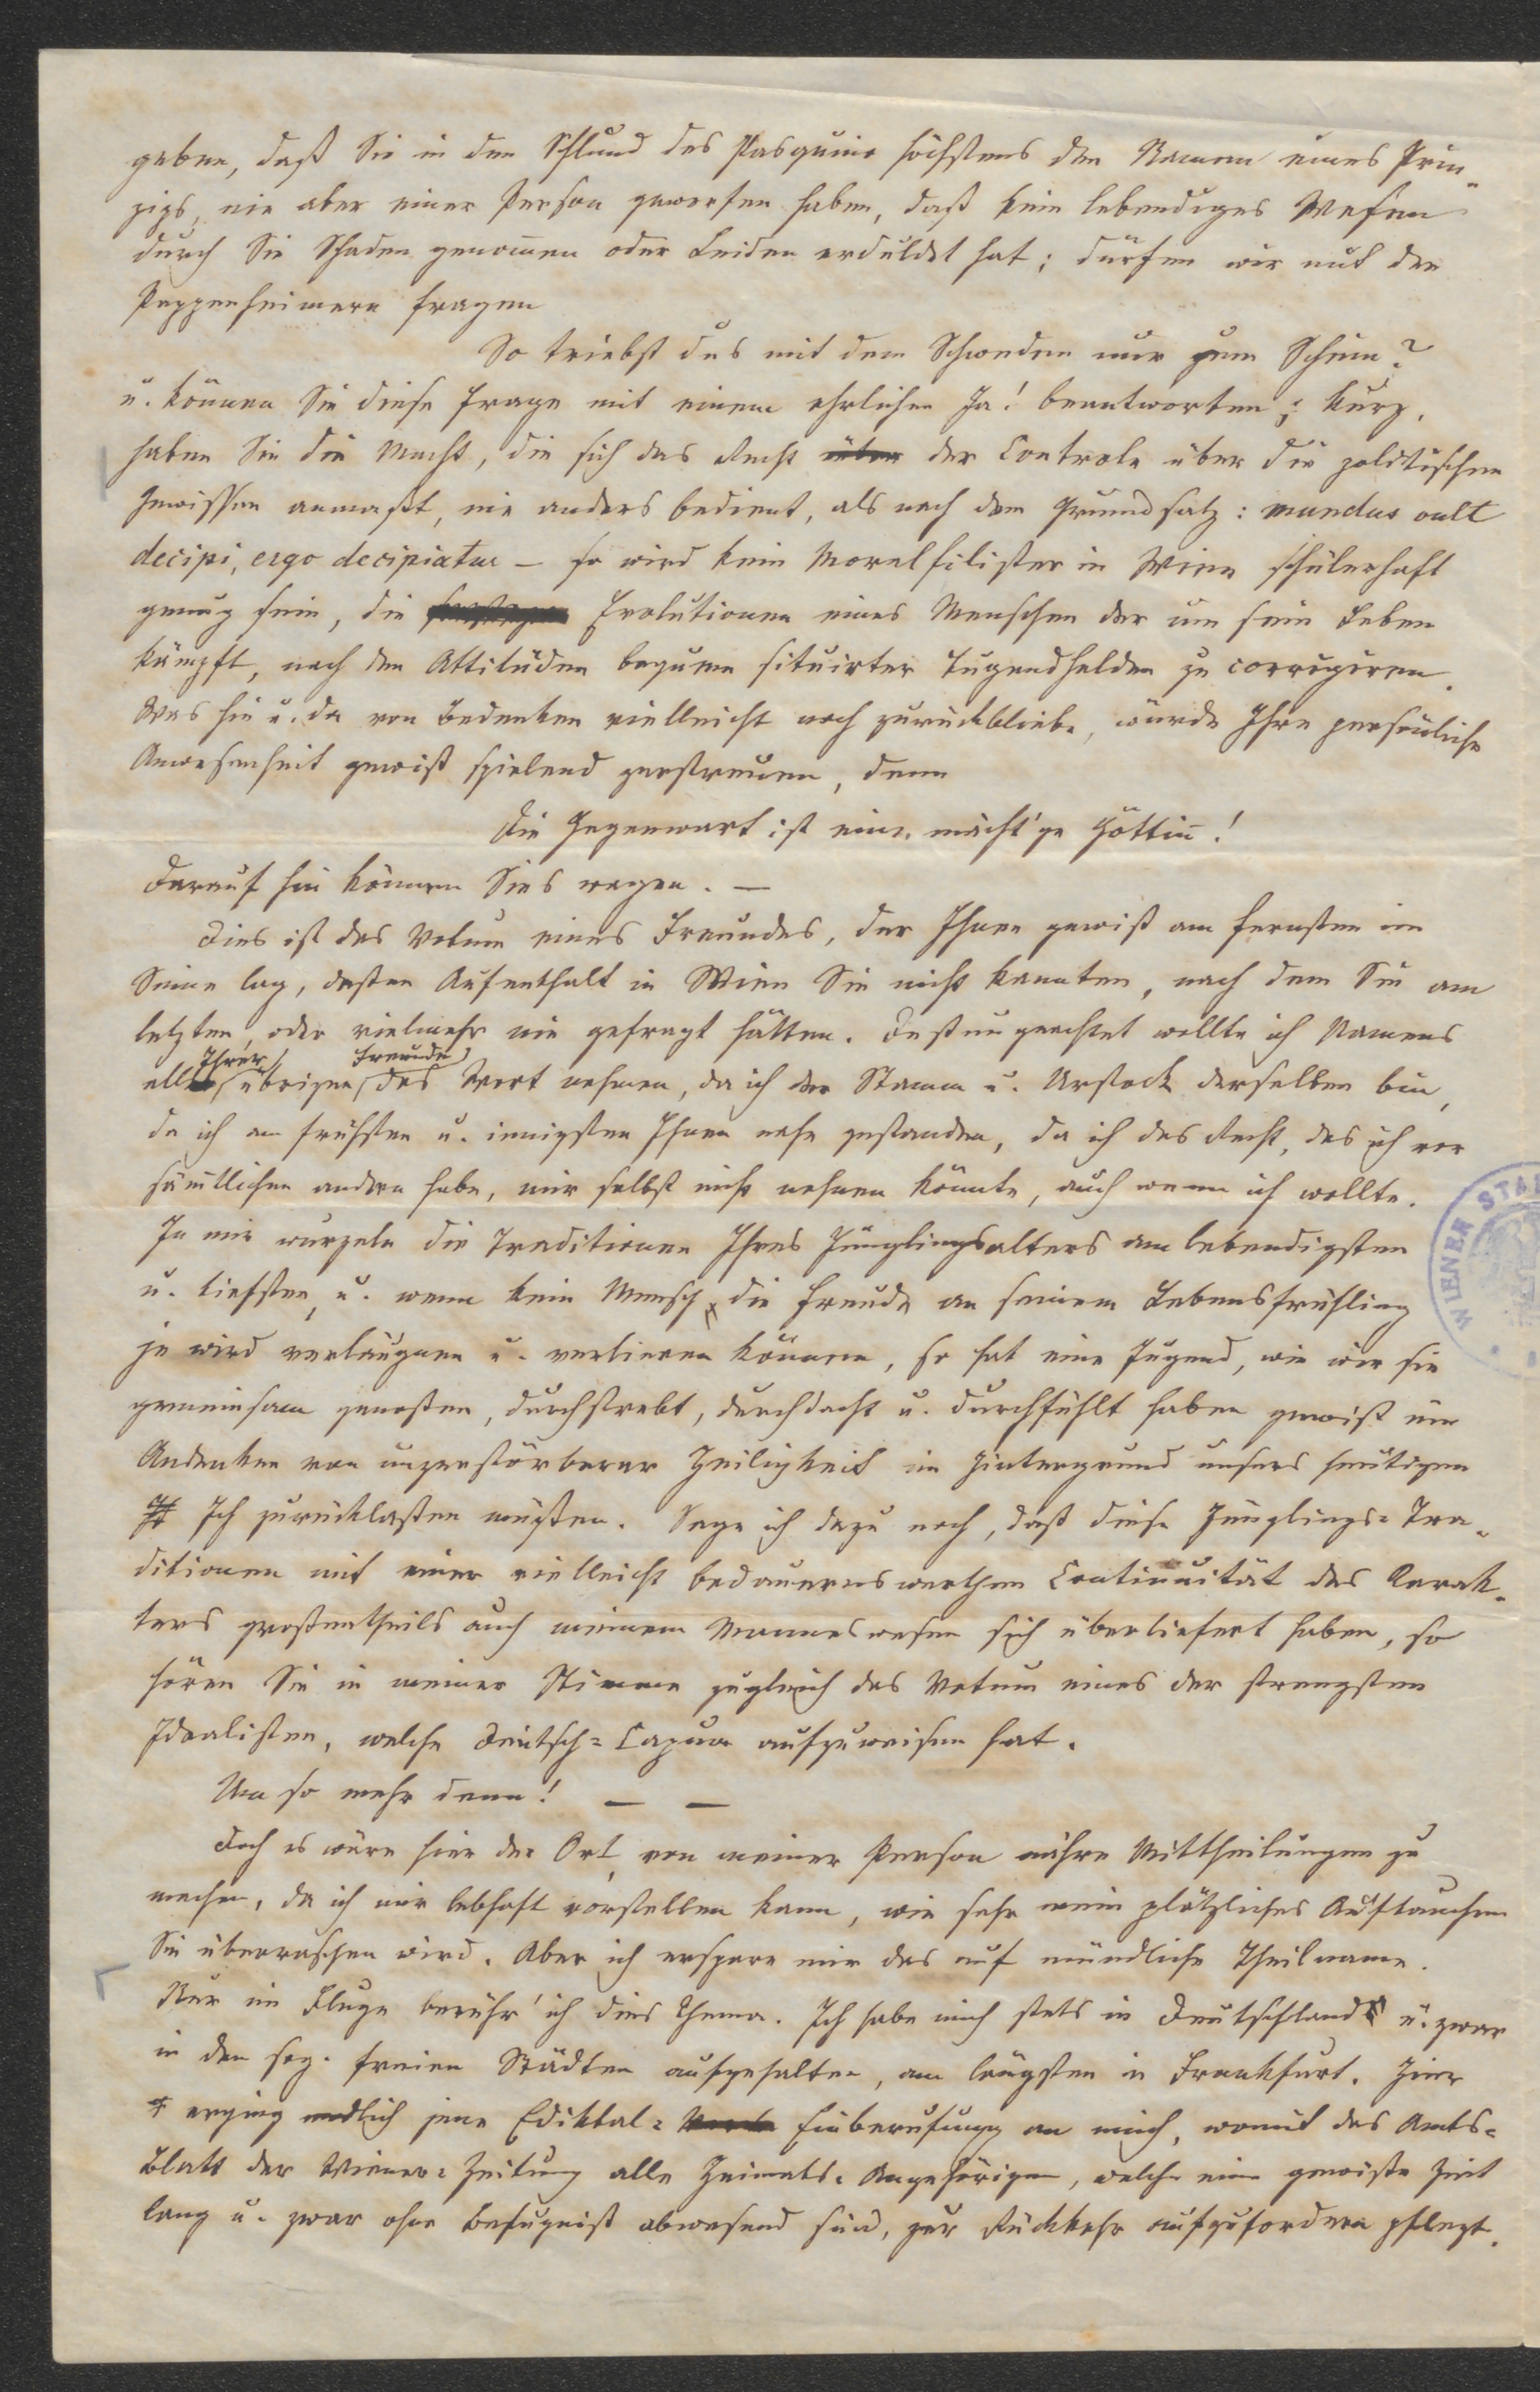 geben, daß Sie in den Schlund des Pasquino höchstens den Namen eines Prin-
zips, nie aber einer Person geworfen haben, daß kein lebendiges Wesen
durch Sie Schaden genom̅en oder Leiden erduldet hat; dürfen wir mit den
Pappenheimern fragen
So triebst du's mit dem Schweden nur zum Schein?
u. können Sie diese Frage mit einem ehrlichen Ja! beantworten; kurz,
haben Sie die Macht, die sich das Recht über der Controle über die politischen
Gewissen anmaßt, nie anders bedient, als nach dem Grundsatz: mundus vult
decipi, ergo decipiatur – so wird kein Moralfilister in Wien schülerhaft
genug sein, die Evolutionen eines Menschen der um sein Leben
kämpft, nach den Attitüden bequem situirter Tugendhelden zu corrigiren.
Was hie u. da von Bedenken vielleicht noch zurückbliebe, würde Ihre persönliche
Anwesenheit gewiß spielend zerstreuen, denn
Die Gegenwart ist eine mächt'ge Göttin̅!
Darauf hin können Sie's wagen. —
Dies ist das Votum eines Freundes, der Ihnen gewiß am fernsten im
Sinne lag, deßen Aufenthalt in Wien Sie nicht kannten, nach dem Sie am
letzten oder vielmehr nie gefragt hätten. Deßungeachtet wollte ich Namens
aller Ihrer übrigen Freunde das Wort nehmen, da ich der Stamm u. Urstock derselben bin,
da ich am frühsten u. innigsten Ihnen nahe gestanden, da ich das Recht, das ich vor
sämtlichen andern habe, mir selbst nicht nehmen könnte, auch wenn ich wollte.
In mir wurzeln die Traditionen Ihres Jünglingsalters am lebendigsten
u. tiefsten, u. wenn kein Mensch die Freude an seinem Lebensfrühling
je wird verläugnen u. verlieren können, so hat eine Jugend, wie wir sie
gemeinsam genoßen, durchstrebt, durchdacht u. durchfühlt haben gewiß ein
Andenken von unzerstörbarer Heiligkeit im Hintergrund unsers heutigen
Ich zurücklaßen müßen. Sage ich dazu noch, daß diese Jünglings-Tra-
ditionen mit einer vielleicht bedauernswerthen Continuität des Karak-
ters großentheils auch meinem Manneswesen sich überliefert haben, so
hören Sie in meiner Stimme zugleich das Votum eines der strengsten
Idealisten, welche Deutsch-Capua aufzuweisen hat.
Um so mehr denn! — —
Doch es wäre hier der Ort, von meiner Person nähre Mittheilungen zu
machen, da ich mir lebhaft vorstellen kann, wie sehr mein plötzliches Auftauchen
Sie überraschen wird. Aber ich erspare mir das auf mündliche Theilname.
Nur im Fluge berühr' ich dies Thema. Ich habe mich stets in Deutschland u. zwar
in den sog. freien Städten aufgehalten, am längsten in Frankfurt. Hier
erging endlich jene Ediktal- Einberufung an mich, womit das Amts-
Blatt der Wiener-Zeitung alle Heimats-Angehörigen, welche eine gewiße Zeit
lang u. zwar ohne Befugniß abwesend sind, zur Rückkehr aufzufordern pflegt.
WIENER STA